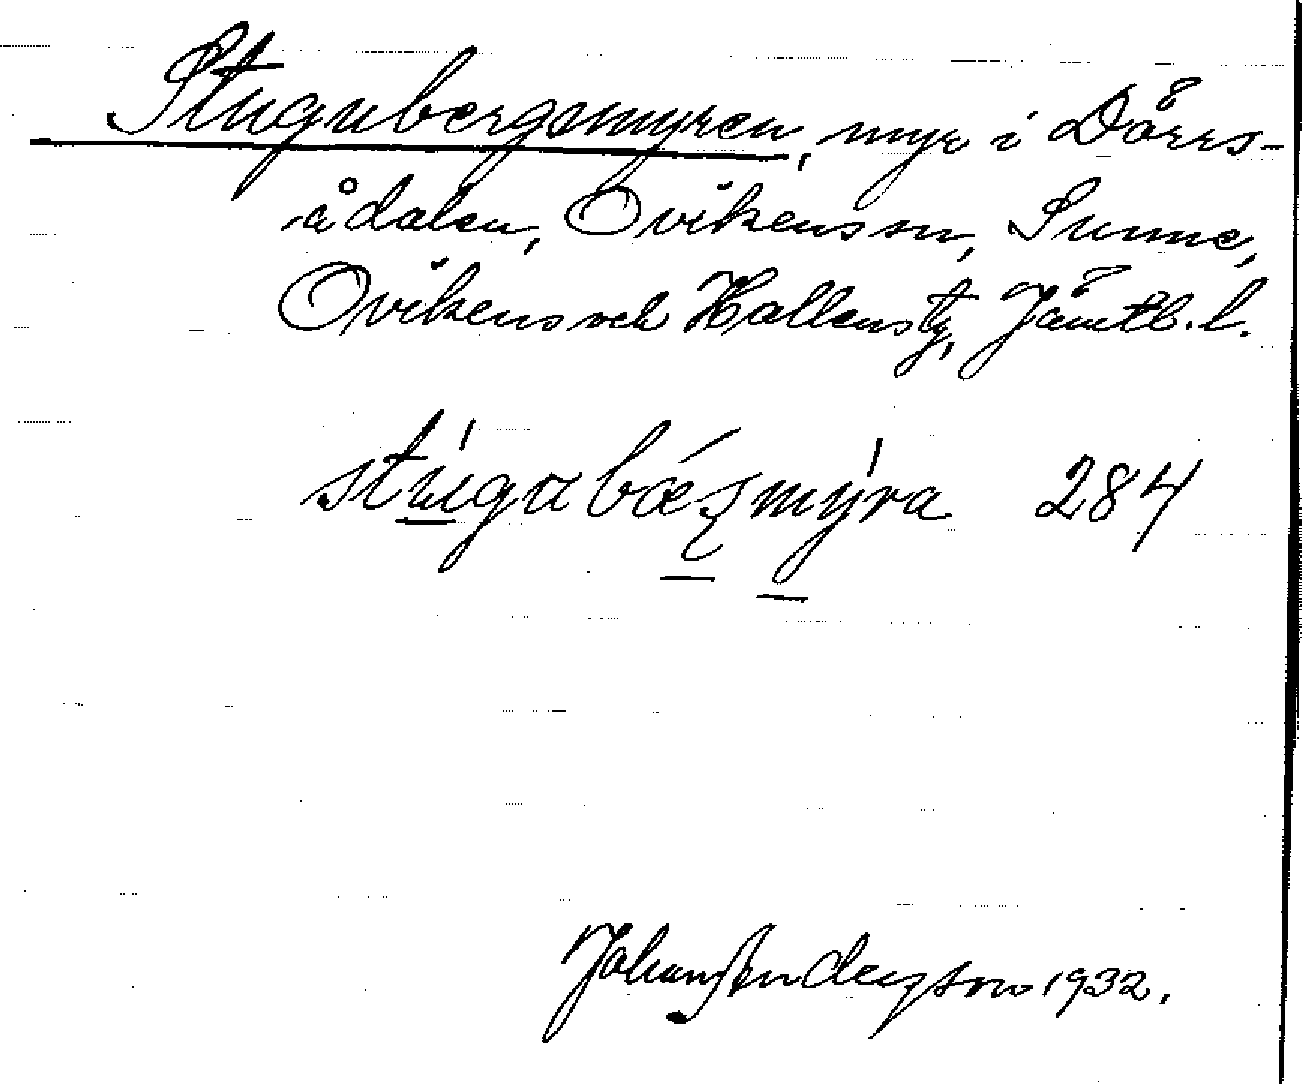 Stugubergsmyren, myr i Dörrs-
ådalen, Ovikens sn, Sunne,
Ovikens och Hallens tg, Jämtl. l.
stúgubǽʂmýra 284
Johan Anderzson 1932.